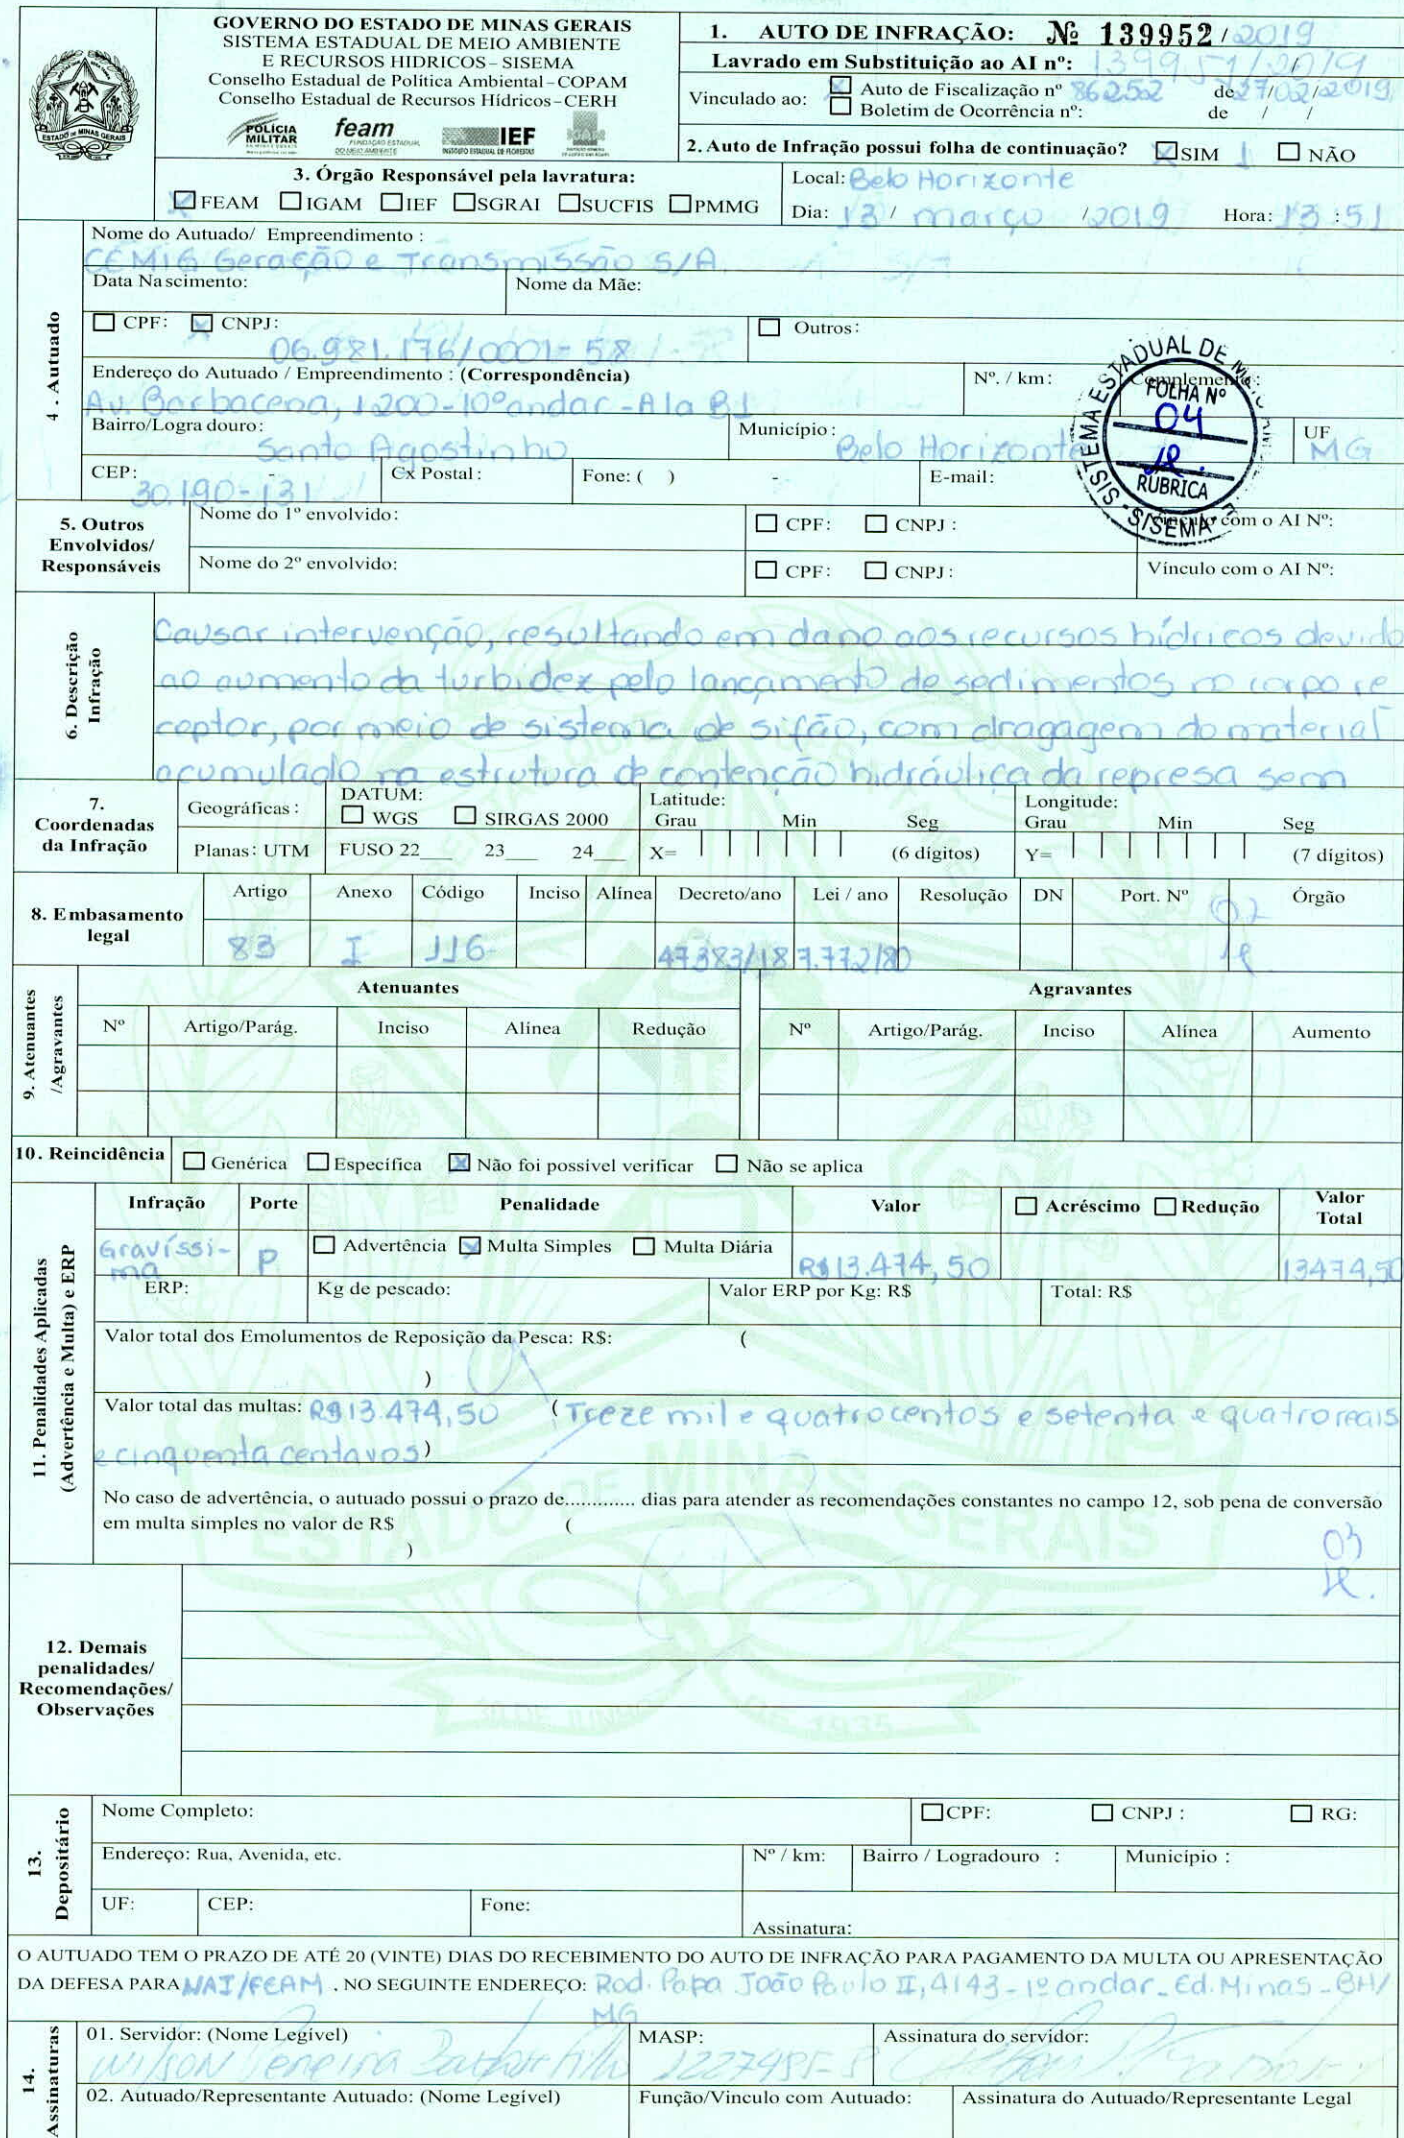 GOVERNO DO ESTADO DE MINAS GERAIS
SISTEMA ESTADUAL DE MEIO AMBIENTE
E RECURSOS HIDRICOS – SISEMA
Conselho Estadual de Política Ambiental – COPAM
Conselho Estadual de Recursos Hídricos – CERH
POLÍCIA MILITAR
feam
FUNDAÇÃO ESTADUAL DO MEIO AMBIENTE
IEF
INSTITUTO ESTADUAL DE FLORESTAS
IGAM
ESTADO DE MINAS GERAIS
1. AUTO DE INFRAÇÃO: Nº 139952 / 2019
Lavrado em Substituição ao AI nº: 139951/2019
Vinculado ao: Auto de Fiscalização nº 862552 de 27/02/2019
Boletim de Ocorrência nº: de / /
2. Auto de Infração possui folha de continuação? SIM 1 NÃO
3. Órgão Responsável pela lavratura:
FEAM IGAM IEF SGRAI SUCFIS PMMG
Local: Belo Horizonte
Dia: 13 / março / 2019 Hora: 13 : 51
4. Autuado
Nome do Autuado/ Empreendimento :
CEMIG Geração e Transmissão S/A
Data Nascimento: Nome da Mãe:
CPF: CNPJ: Outros:
06.981.176/0001-58
Endereço do Autuado / Empreendimento : (Correspondência) Nº. / km: Complemento:
Av. Barbacena, 1200 - 10º andar - Ala B1
Bairro/Logra douro: Santo Agostinho Município: Belo Horizonte UF MG
CEP: 30.190-131 Cx Postal: Fone: ( ) - E-mail:
SISTEMA ESTADUAL DE
FOLHA Nº
04
RUBRICA
SISEMA
5. Outros Envolvidos/ Responsáveis
Nome do 1º envolvido: CPF: CNPJ: Vínculo com o AI Nº:
Nome do 2º envolvido: CPF: CNPJ: Vínculo com o AI Nº:
6. Descrição Infração
Causar intervenção, resultando em dano aos recursos hídricos devido
ao aumento da turbidez pelo lançamento de sedimentos no corpo re
ceptor, por meio de sistema de sifão, com dragagem do material
acumulado na estrutura de contenção hidráulica da represa sem
7. Coordenadas da Infração
Geográficas: DATUM: WGS SIRGAS 2000 Latitude: Grau Min Seg Longitude: Grau Min Seg
Planas: UTM FUSO 22___ 23___ 24___ X= (6 dígitos) Y= (7 dígitos)
8. Embasamento legal
Artigo Anexo Código Inciso Alínea Decreto/ano Lei / ano Resolução DN Port. Nº Órgão
83 I 116 47383/18 7.772/80
02
9. Atenuantes /Agravantes
Atenuantes Agravantes
Nº Artigo/Parág. Inciso Alínea Redução Nº Artigo/Parág. Inciso Alínea Aumento
10. Reincidência Genérica Específica Não foi possível verificar Não se aplica
11. Penalidades Aplicadas (Advertência e Multa) e ERP
Infração Porte Penalidade Valor Acréscimo Redução Valor Total
Gravíssi-
ma P Advertência Multa Simples Multa Diária R$13.474,50 13474,50
ERP: Kg de pescado: Valor ERP por Kg: R$ Total: R$
Valor total dos Emolumentos de Reposição da Pesca: R$: (
)
Valor total das multas: R$13.474,50 (Treze mil e quatrocentos e setenta e quatro reais
e cinquenta centavos)
No caso de advertência, o autuado possui o prazo de............. dias para atender as recomendações constantes no campo 12, sob pena de conversão
em multa simples no valor de R$ (
)
03
12. Demais penalidades/ Recomendações/ Observações
13. Depositário
Nome Completo: CPF: CNPJ: RG:
Endereço: Rua, Avenida, etc. Nº / km: Bairro / Logradouro : Município :
UF: CEP: Fone: Assinatura:
O AUTUADO TEM O PRAZO DE ATÉ 20 (VINTE) DIAS DO RECEBIMENTO DO AUTO DE INFRAÇÃO PARA PAGAMENTO DA MULTA OU APRESENTAÇÃO
DA DEFESA PARA NAI/FEAM . NO SEGUINTE ENDEREÇO: Rod. Papa João Paulo II, 4143 - 1º andar - Ed. Minas - BH/
MG
14. Assinaturas
01. Servidor: (Nome Legível) MASP: Assinatura do servidor:
Wilson Pereira
02. Autuado/Representante Autuado: (Nome Legível) Função/Vinculo com Autuado: Assinatura do Autuado/Representante Legal
ESTADO DE MINAS GERAIS